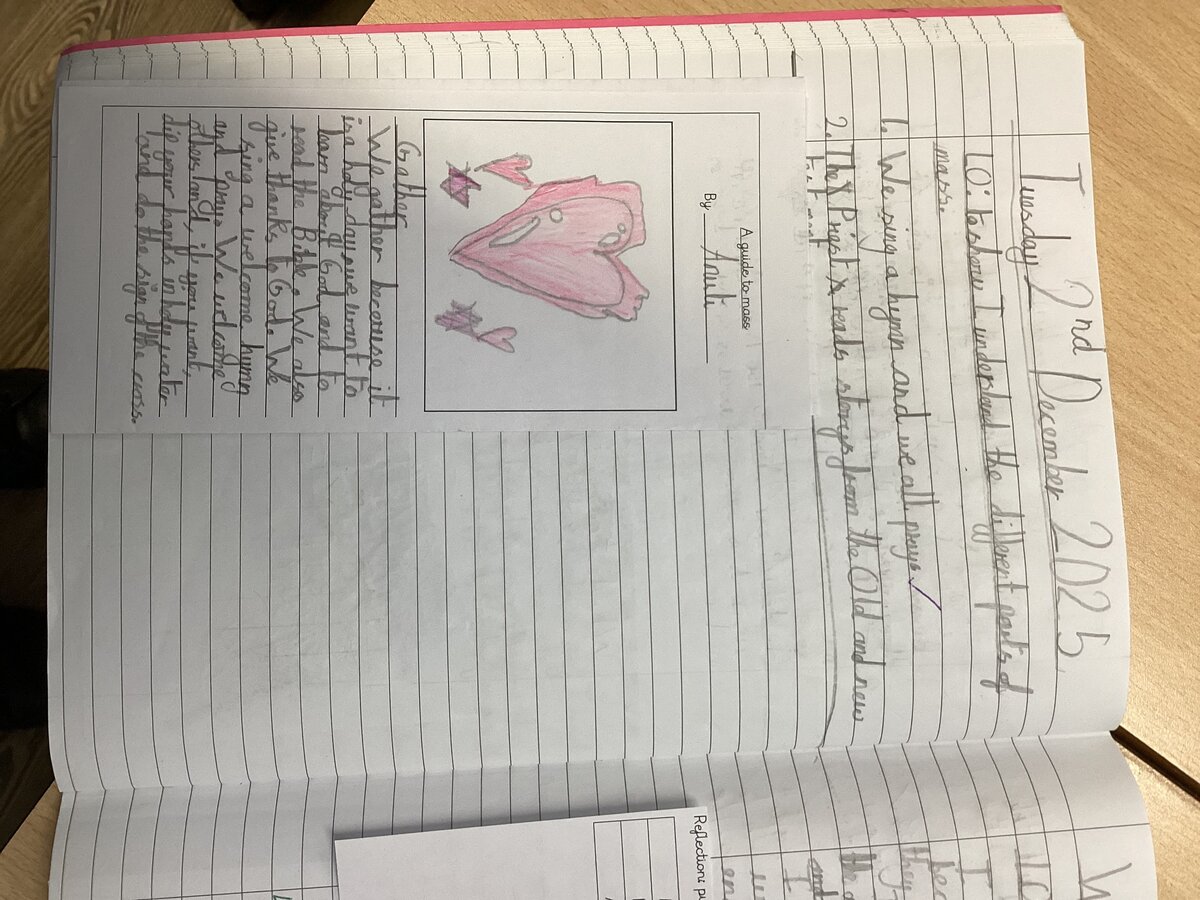 Tuesday 2nd December 2025
LO: to show I understand the different parts of
mass.
1. We sing a hymn and we all prays
2. The Priest reads storys from the Old and new
A guide to mass
By Anuti
Gather
We gather because it
is a holy day we want to
learn about God and to
read the Bible. We also
give thanks to God. We
sing a welcome hymn
and pray. We welcome
others and, if you want,
dip your hands in holy water
and do the sign of the cross.
Reflection